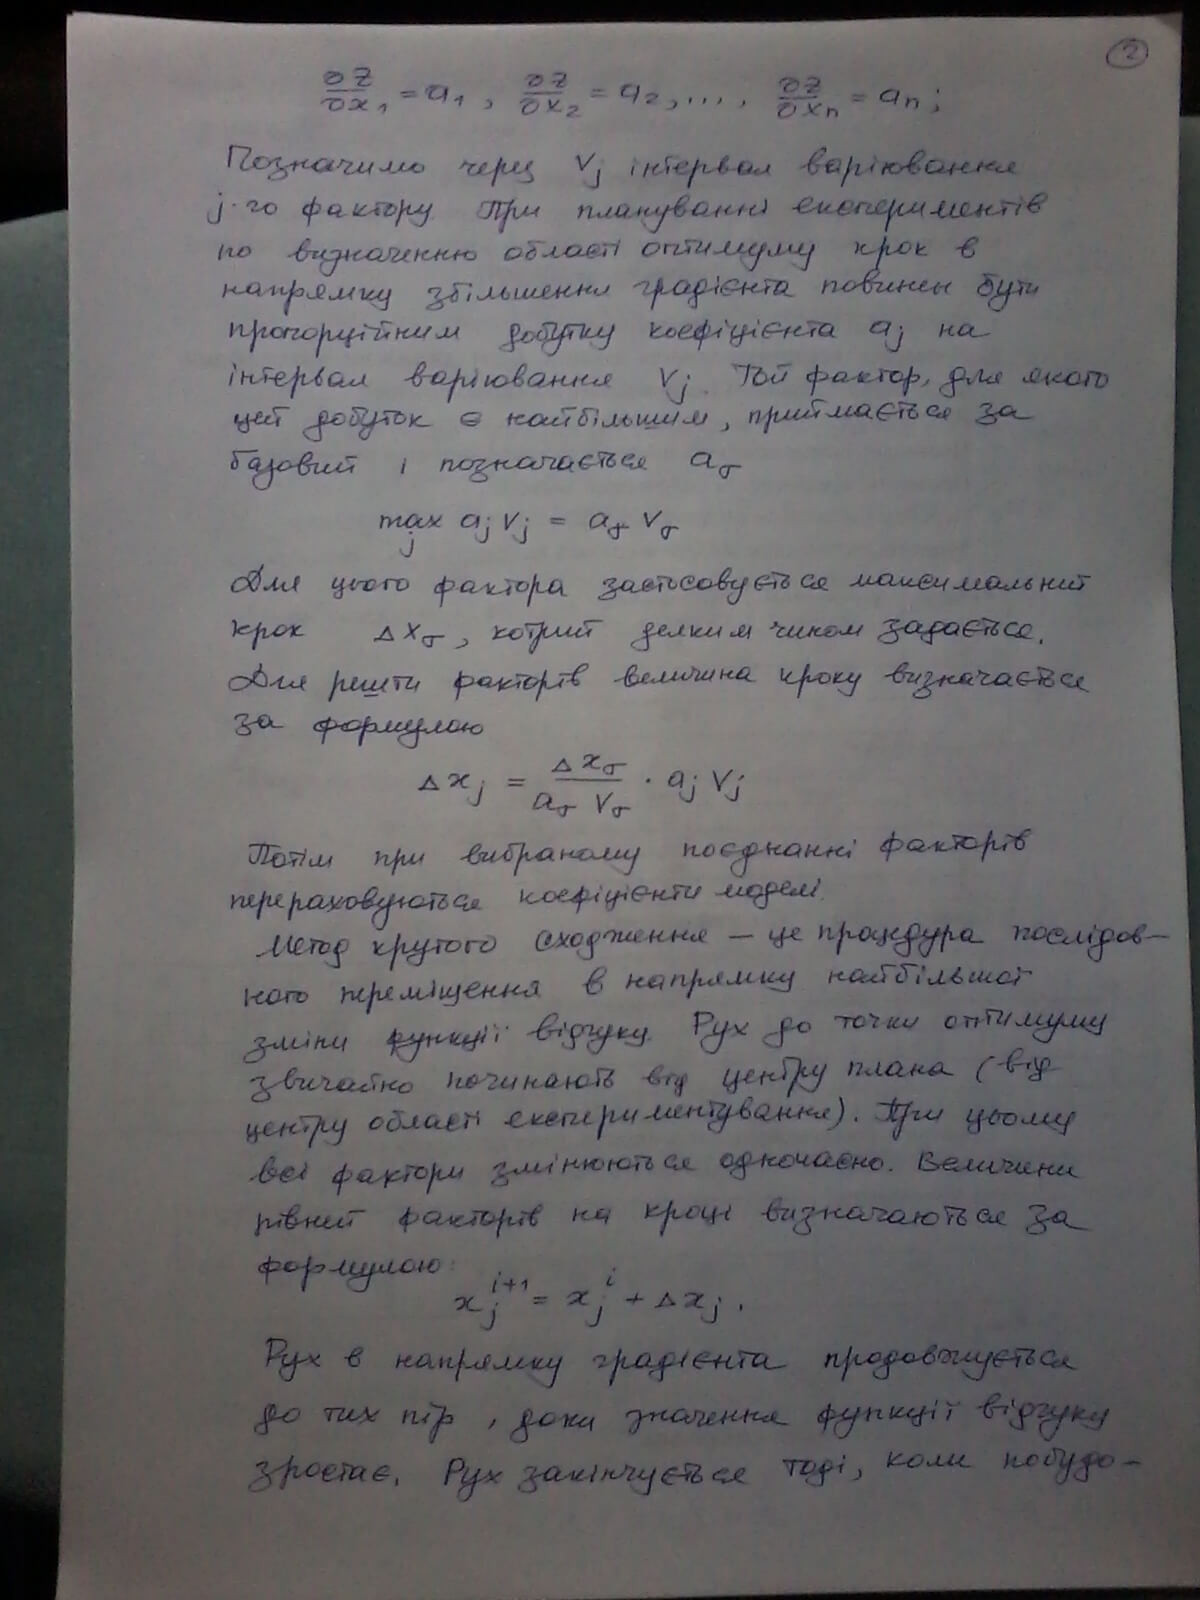 2
∂z/∂x₁ = a₁, ∂z/∂x₂ = a₂, ..., ∂z/∂xₙ = aₙ;
Позначимо через Vj інтервал варіювання
j-го фактору. При плануванні експериментів
по визначенню області оптимуму крок в
напрямку збільшення градієнта повинен бути
пропорційним добутку коефіцієнта aj на
інтервал варіювання Vj. Той фактор, для якого
цей добуток є найбільшим, приймається за
базовий і позначається aσ
max aj Vj = aσ Vσ
j
Для цього фактора застосовується максимальний
крок Δxσ, котрий деяким чином задається.
Для решти факторів величина кроку визначається
за формулою
Δxj = Δxσ / aσ Vσ · aj Vj
Потім при вибраному поєднанні факторів
перераховуються коефіцієнти моделі.
Метод крутого сходження – це процедура послідов–
ного переміщення в напрямку найбільшої
зміни функції відгуку. Рух до точки оптимуму
звичайно починають від центру плана (від
центру області експериментування). При цьому
всі фактори змінюються одночасно. Величини
рівней факторів на кроці визначаються за
формулою:
xj^(i+1) = xj^i + Δxj.
Рух в напрямку градієнта продовжується
до тих пір, доки значення функції відгуку
зростає. Рух закінчується тоді, коли побудо–